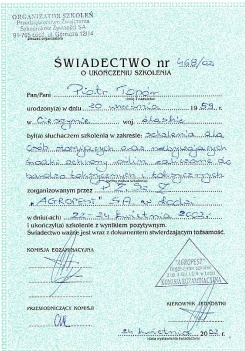 ORGANIZATOR SZKOLEŃ
ŚWIADECTWO nr 468/02
O UKOŃCZENIU SZKOLENIA
Pan/Pani Piotr Topór
urodzony(a) w dniu 20 września 1959 r.
w Cieszynie woj. śląskie
był(a) słuchaczem szkolenia w zakresie: szkolenia dla
osób
środki ochrony roślin zaliczone do
bardzo toksycznych i toksycznych
zorganizowanym przez
"AGROPEST" S.A. w Łodzi
w dniu(ach) 22-24 kwietnia 2002 r.
i ukończył(a) szkolenie z wynikiem pozytywnym.
Świadectwo ważne jest wraz z dokumentem stwierdzającym tożsamość.
KOMISJA EGZAMINACYJNA
"AGROPEST"
KOMISJA EGZAMINACYJNA
PRZEWODNICZĄCY KOMISJI
KIEROWNIK JEDNOSTKI
24 kwietnia 2002 r.